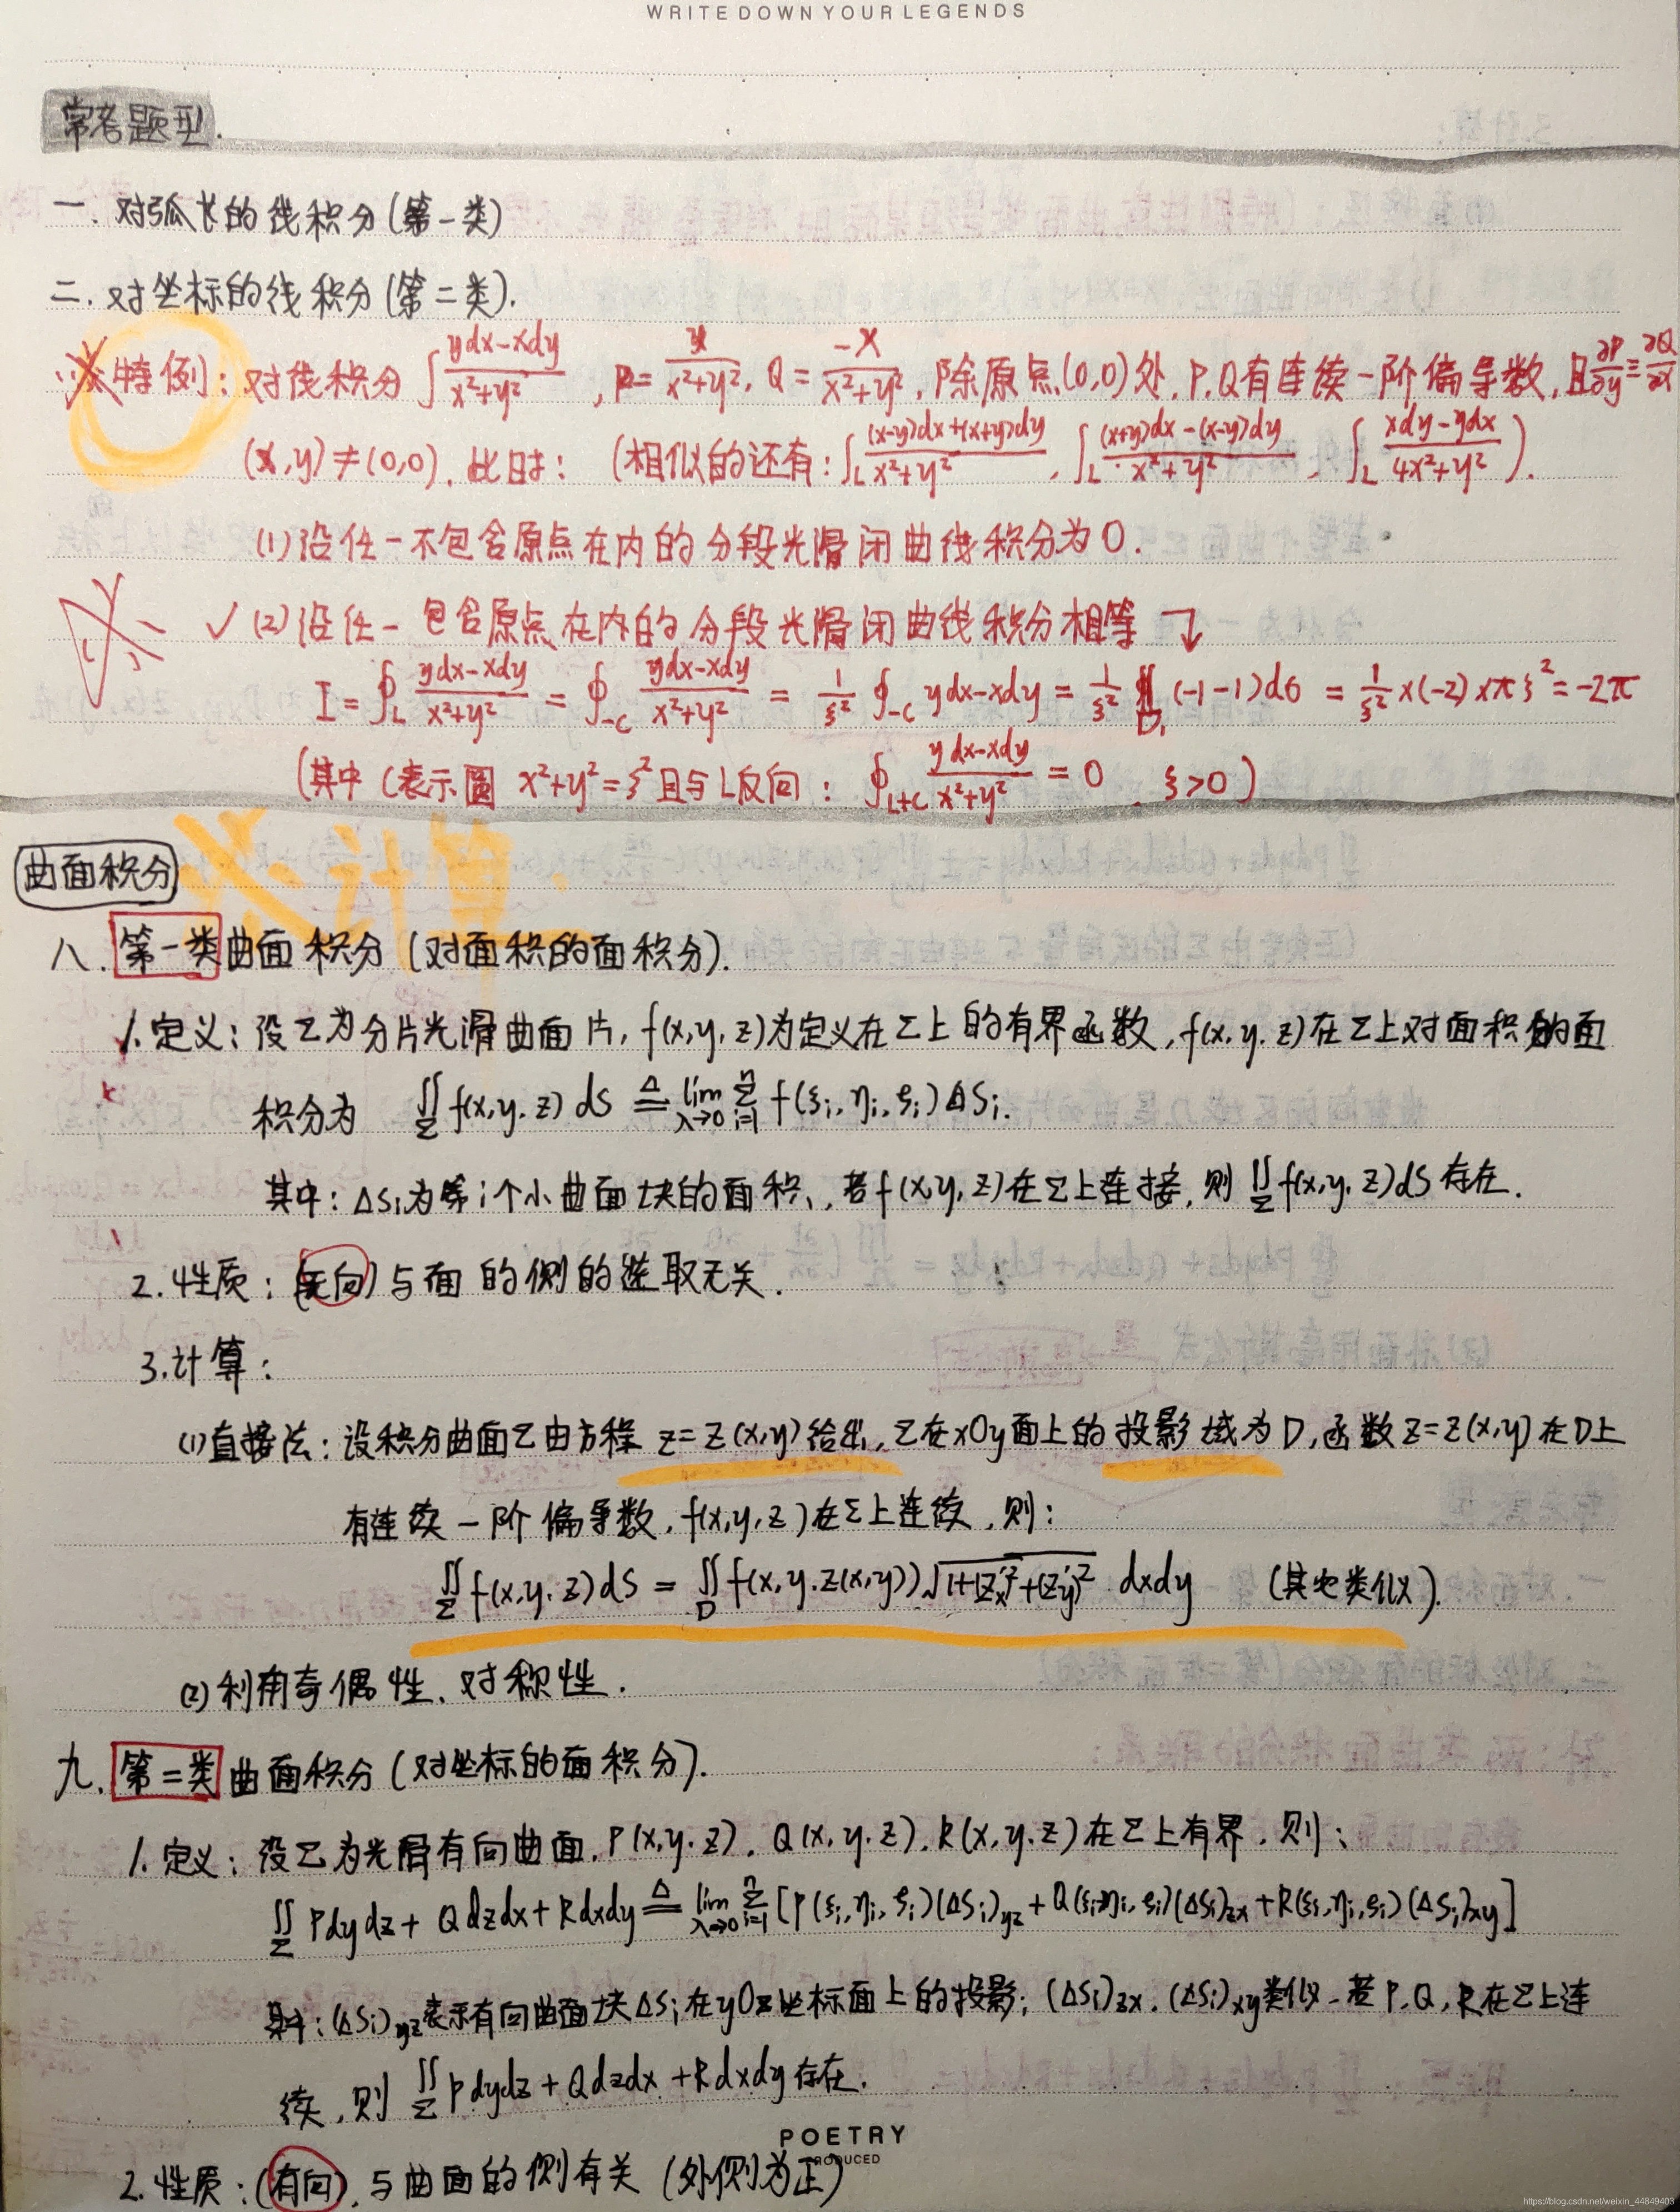 WRITE DOWN YOUR LEGENDS
常考题型.
一. 对弧长的线积分(第一类)
二. 对坐标的线积分(第二类).
特例: 对线积分 ∫ (ydx-xdy)/(x²+y²), P= y/(x²+y²), Q= -x/(x²+y²), 除原点(0,0)处, P.Q有连续一阶偏导数, 且 ∂P/∂y ≡ ∂Q/∂x
(x,y)≠(0,0), 此时: (相似的还有: ∫_L ((x-y)dx+(x+y)dy)/(x²+y²), ∫_L ((x+y)dx-(x-y)dy)/(x²+y²), ∫_L (xdy-ydx)/(4x²+y²)).
(1)沿任一不包含原点在内的分段光滑闭曲线积分为0.
✓ (2)沿任一包含原点在内的分段光滑闭曲线积分相等
I = ∮_L (ydx-xdy)/(x²+y²) = ∮_{-C} (ydx-xdy)/(x²+y²) = 1/ξ² ∮_{-C} ydx-xdy = 1/ξ² ∬_{D₁} (-1-1)dσ = 1/ξ² ×(-2)×πξ² = -2π
(其中C表示圆 x²+y²=ξ²且与L反向: ∮_{L+C} (ydx-xdy)/(x²+y²) = 0, ξ>0)
曲面积分
※计算.
八. 第一类曲面积分(对面积的面积分).
1.定义: 设Σ为分片光滑曲面片, f(x,y,z)为定义在Σ上的有界函数, f(x,y,z)在Σ上对面积的面
积分为 ∬_Σ f(x,y,z)dS ≜ lim_{λ→0} Σ_{i=1}^n f(ξi,ηi,ζi)ΔSi.
其中: ΔSi为第i个小曲面块的面积, 若f(x,y,z)在Σ上连接, 则 ∬_Σ f(x,y,z)dS存在.
2.性质: (无向)与面的侧的选取无关.
3.计算:
(1)直接法: 设积分曲面Σ由方程 z=z(x,y)给出, Σ在xOy面上的投影域为D, 函数z=z(x,y)在D上
有连续一阶偏导数, f(x,y,z)在Σ上连续, 则:
∬_Σ f(x,y,z)dS = ∬_D f(x,y,z(x,y))√(1+(z'x)²+(z'y)²) dxdy (其它类似).
(2)利用奇偶性、对称性.
九. 第二类曲面积分(对坐标的面积分).
1.定义: 设Σ为光滑有向曲面, P(x,y,z), Q(x,y,z), R(x,y,z)在Σ上有界, 则:
∬_Σ Pdydz+Qdzdx+Rdxdy ≜ lim_{λ→0} Σ_{i=1}^n [P(ξi,ηi,ζi)(ΔSi)yz+Q(ξi,ηi,ζi)(ΔSi)zx+R(ξi,ηi,ζi)(ΔSi)xy]
其中: (ΔSi)yz表示有向曲面块ΔSi在yOz坐标面上的投影; (ΔSi)zx, (ΔSi)xy类似. 若P,Q,R在Σ上连
续, 则 ∬_Σ Pdydz+Qdzdx+Rdxdy存在.
POETRY
2.性质: (有向), 与曲面的侧有关 (外侧为正)
https://blog.csdn.net/weixin_44849403